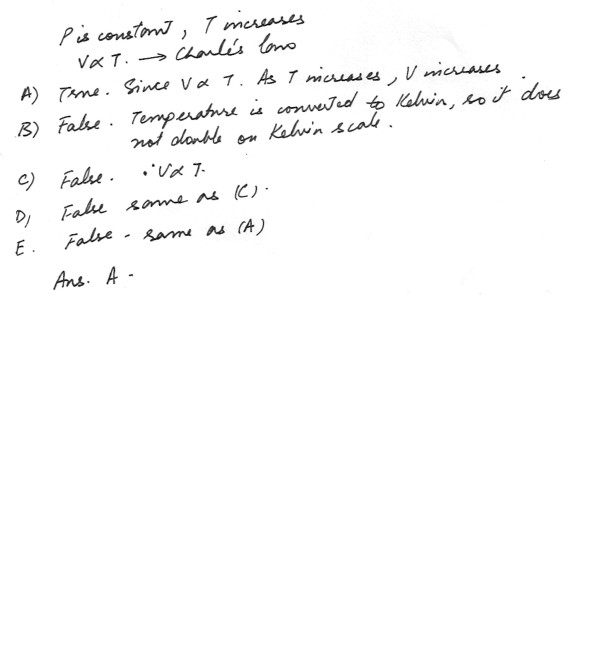 P is constant, T increases
V∝ T. → Charle's law
A) True. Since V ∝ T. As T increases, V increases.
B) False. Temperature is converted to Kelvin, so it does
not double on Kelvin scale.
C) False. ∵ V∝ T.
D, False same as (C).
E. False - same as (A)
Ans. A -